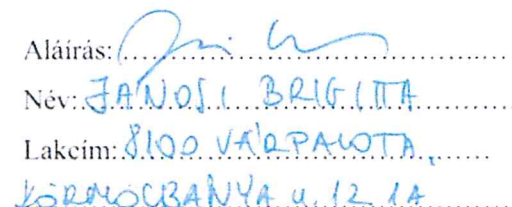 Aláírás:
Név: JÁNOSI BRIGITTA
Lakcím: 8100 VÁRPALOTA,
KÖRMÖCBÁNYA u. 12. 1A